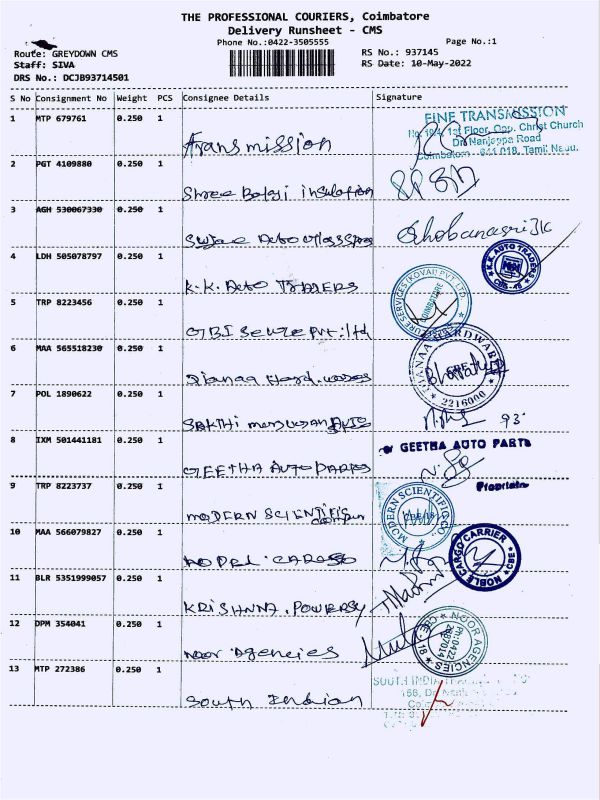 THE PROFESSIONAL COURIERS, Coimbatore
Delivery Runsheet - CMS
Phone No.:0422-3505555
Page No.:1
Route: GREYDOWN CMS
RS No.: 937145
Staff: SIVA
RS Date: 10-May-2022
DRS No.: DCJB93714501
S No Consignment No Weight PCS Consignee Details Signature
1 MTP 679761 0.250 1
FINE TRANSMISSION
1st Floor, Opp. Christ Church
Dr. Nanjappa Road
Coimbatore - 641 018, Tamil Nadu.
Transmission
2 PGT 4109880 0.250 1
Shree Balaji insulation
3 AGH 530067330 0.250 1
Auto
4 LDH 505078797 0.250 1
K.K. AUTO TRADERS
CBE-18
K.K. Auto TRADERS
5 TRP 8223456 0.250 1
URE SERVICES (KOVAI) PVT. LTD.
COIMBATORE
Pvt.ltd
6 MAA 565518230 0.250 1
HARDWARE
2216000
7 POL 1890622 0.250 1
SAKTHI
8 IXM 501441181 0.250 1
GEETHA AUTO PARTS
GEETHA AUTO PARTS
9 TRP 8223737 0.250 1
MODERN SCIENTIFIC CO.
CBE-18
MODERN SCIENTIFIC
10 MAA 566079827 0.250 1
NOBLE CARGO CARRIER
CBE
11 BLR 5351999057 0.250 1
KRISHNA
12 DPM 354041 0.250 1
NOOR AGENCIES
Ph:0422
CBE - 18
Noor Agencies
13 MTP 272386 0.250 1
SOUTH INDIA
South Indian